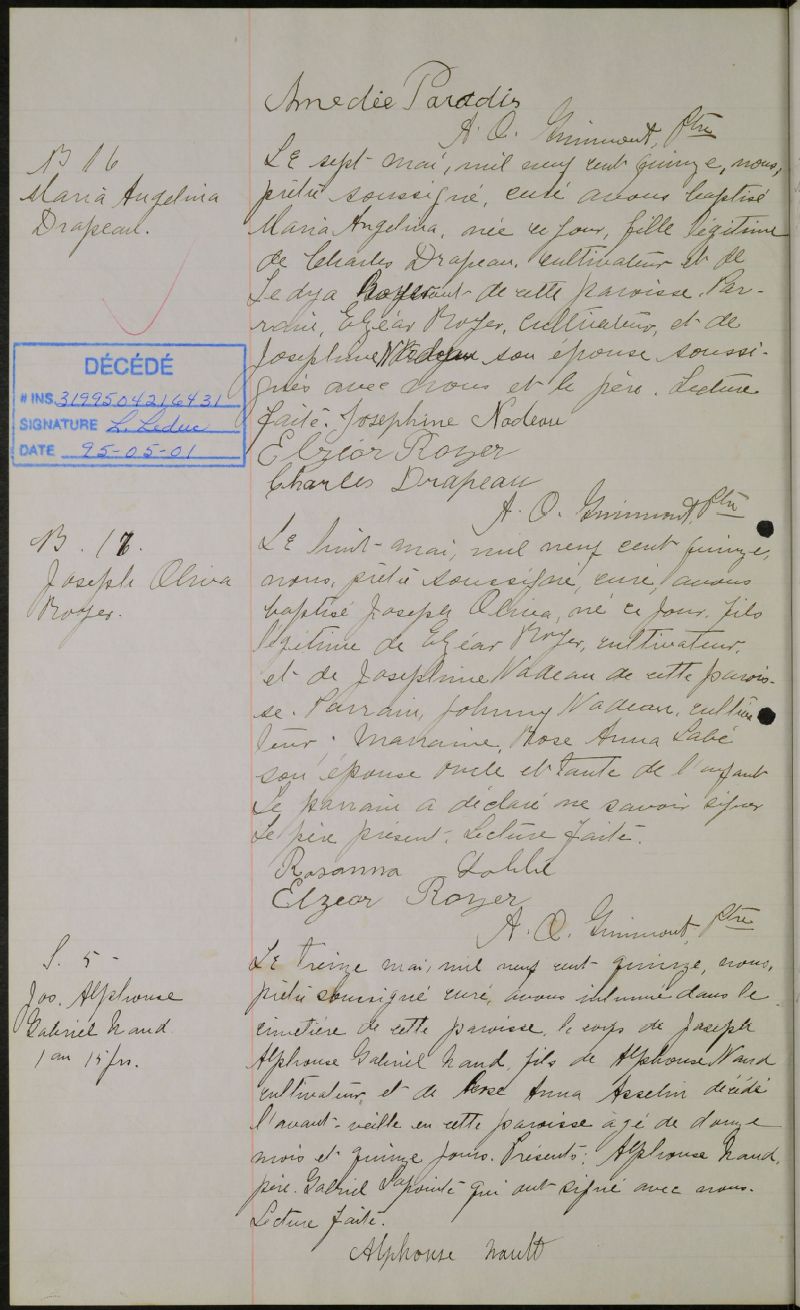 Amedée Paradis
A. O. Guimont, Ptre
B 16
Maria Angelina
Drapeau.
Le sept mai, mil neuf cent quinze, nous,
prêtre soussigné, curé avons baptisé
Maria Angelina, née ce jour, fille légitime
de Charles Drapeau, cultivateur et de
Ledya Royer de cette paroisse. Par-
rain, Elzéar Royer, cultivateur, et de
Josephine Nadeau son épouse soussi-
gnés avec nous et le père. Lecture
faite. Josephine Nadeau
Elzéar Royer
Charles Drapeau
A. O. Guimont, Ptre
DÉCÉDÉ
# INS. 3199504216431
SIGNATURE L. Leduc
DATE 95-05-01
B. 17.
Joseph Oliva
Royer.
Le huit mai, mil neuf cent quinze,
nous, prêtre soussigné, curé, avons
baptisé Joseph Oliva, né ce jour, fils
légitime de Elzéar Royer, cultivateur,
et de Josephine Nadeau de cette parois-
se. Parrain, Johnny Nadeau, cultiva
teur; Marraine, Rose Anna Labé
son épouse oncle et tante de l'enfant
Le parrain a déclaré ne savoir signer
Le père présent. Lecture faite.
Rosanna Labbé
Elzear Royer
A. O. Guimont, Ptre
S. 5 -
Jos. Alphonse
Gabriel Naud
1 an 15 jrs.
Le treize mai, mil neuf cent quinze, nous,
prêtre soussigné curé, avons inhumé dans le
cimetière de cette paroisse, le corps de Joseph
Alphonse Gabriel Naud, fils de Alphonse Naud
cultivateur et de Rose Anna Asselin décédé
l'avant-veille en cette paroisse âgé de douze
mois et quinze jours. Présents: Alphonse Naud,
père. Gabriel Lapointe qui ont signé avec nous.
Lecture faite.
Alphonse Nault